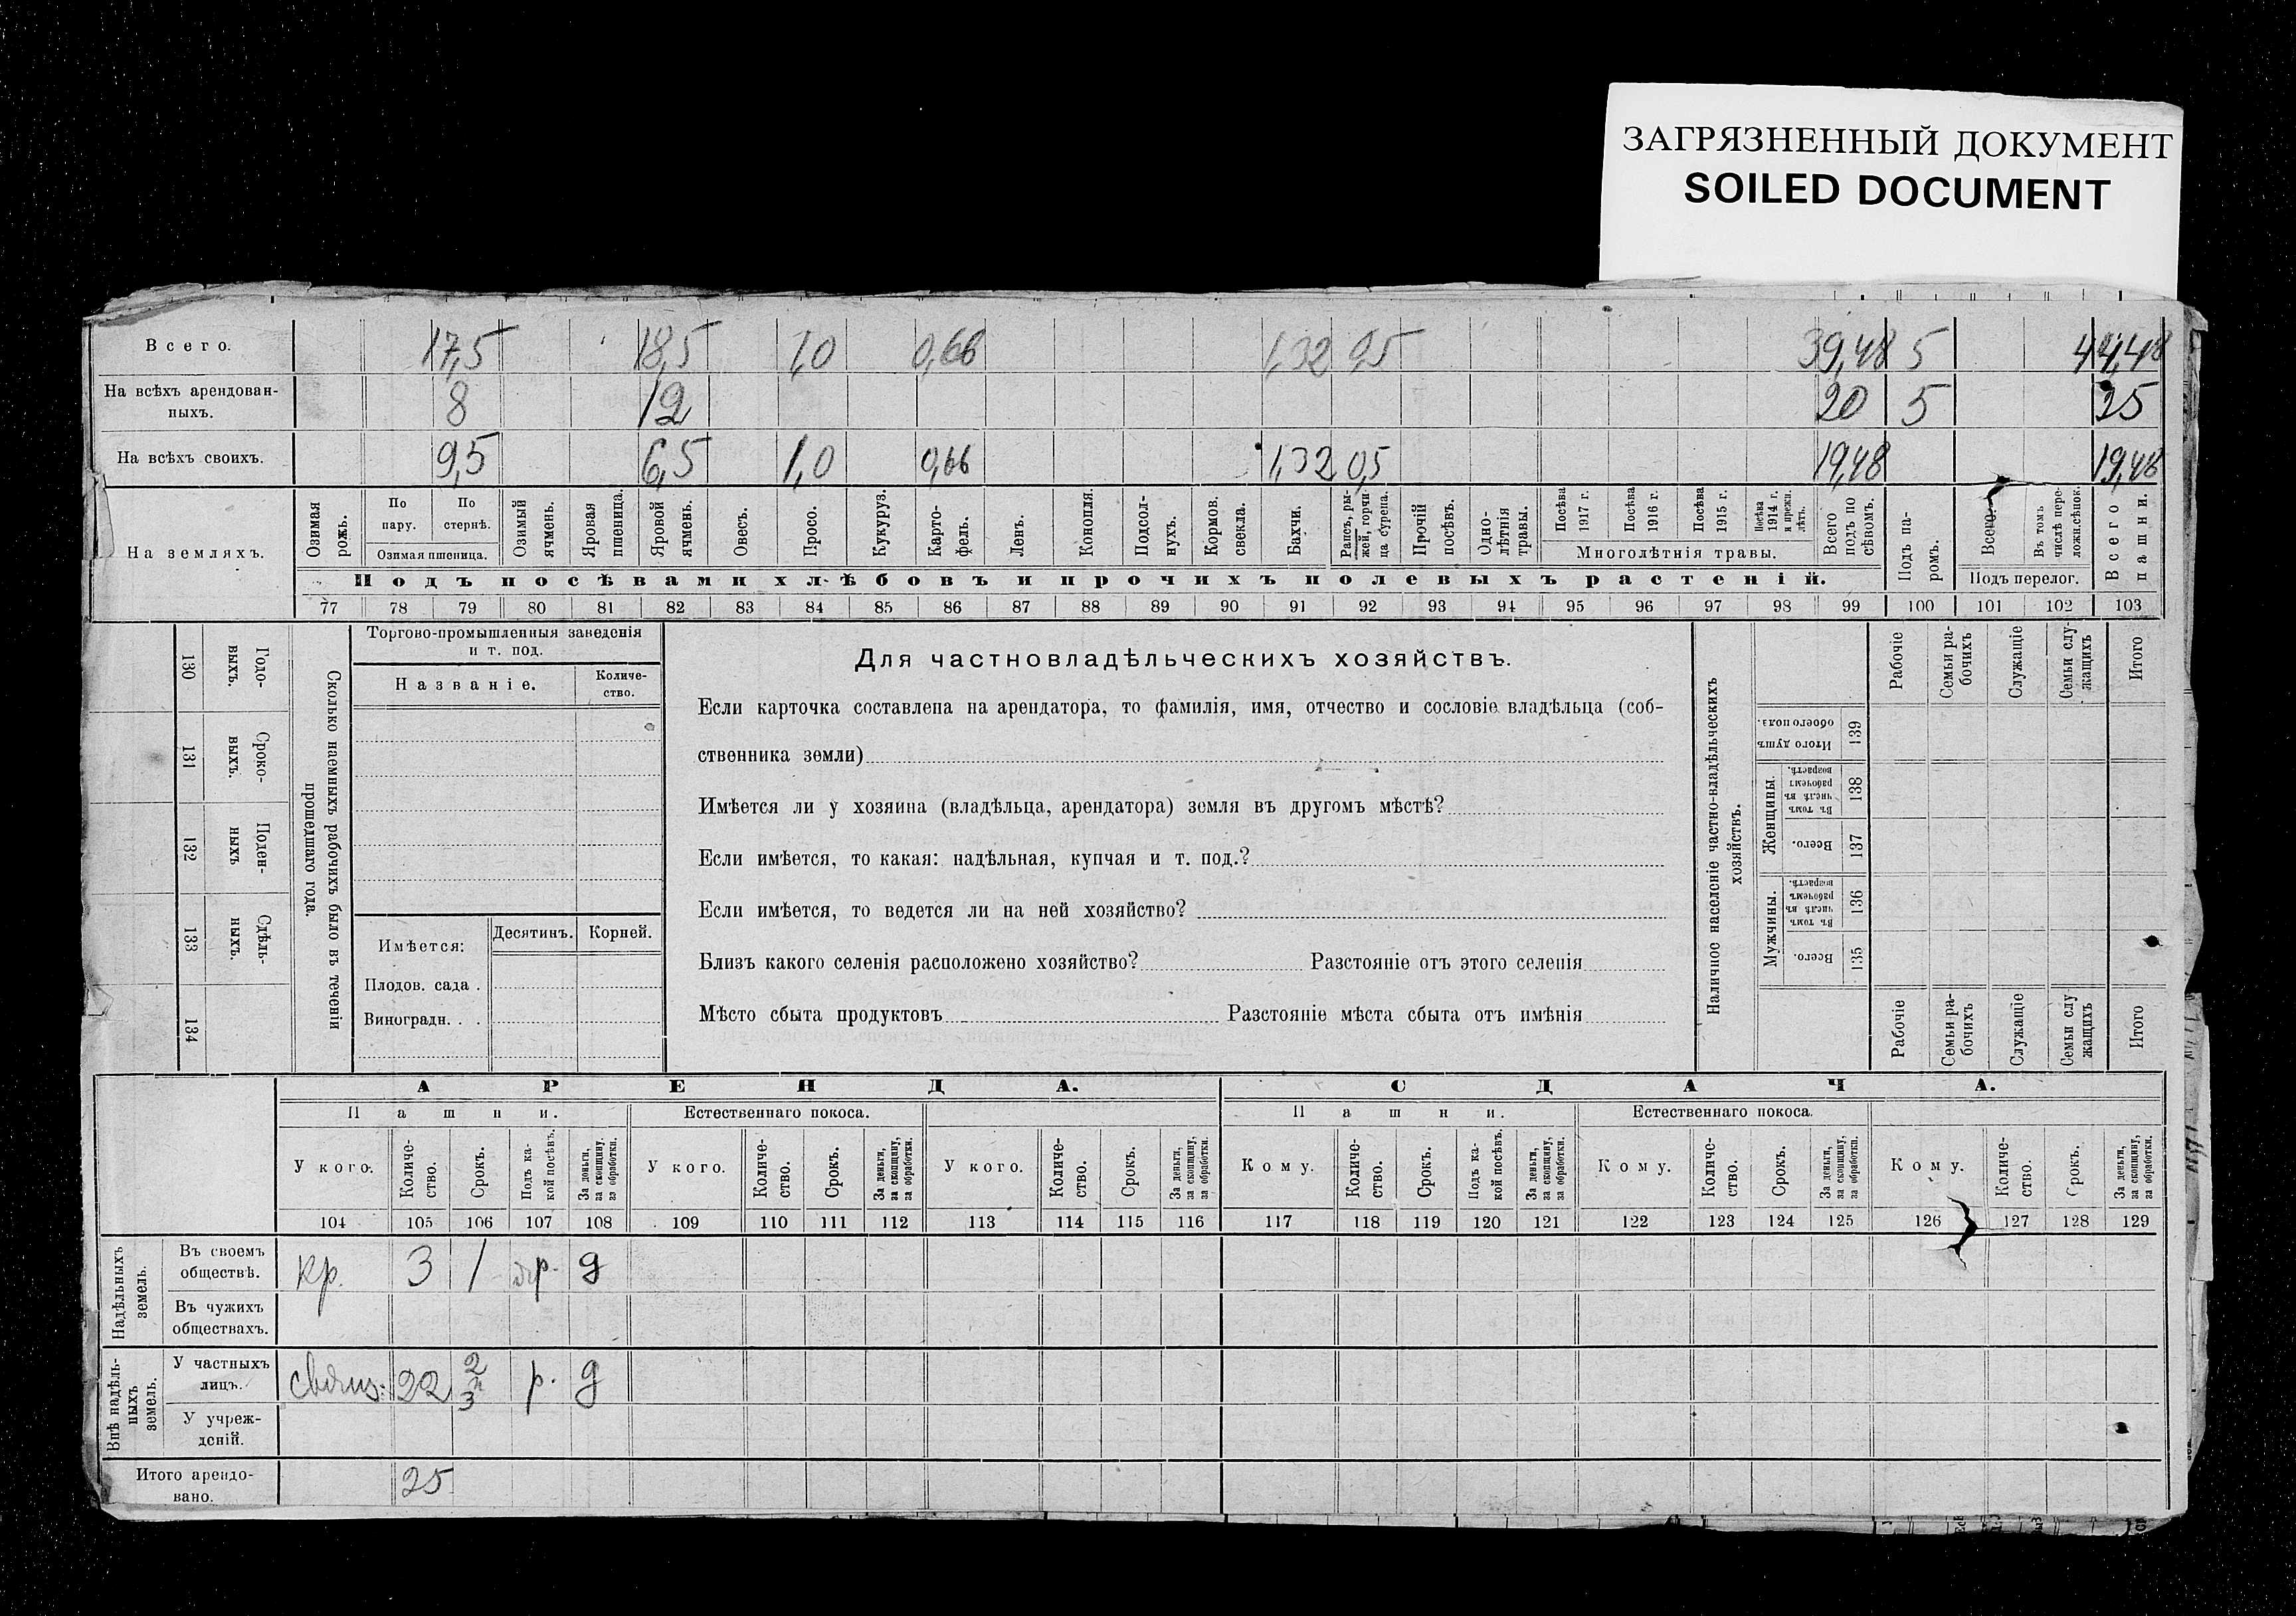 ЗАГРЯЗНЕННЫЙ ДОКУМЕНТ
SOILED DOCUMENT
Всего. 17,5 18,5 1,0 0,66 1,32 0,5 39,48 5 44,48
На всѣхъ арендован-
ныхъ. 8 12 20 5 25
На всѣхъ своихъ. 9,5 6,5 1,0 0,66 1,32 0,5 19,48 19,48
На земляхъ.
Озимая рожь.
По пару.
По стернѣ.
Озимая пшеница.
Озимый ячмень.
Яровая пшеница.
Яровой ячмень.
Овесъ.
Просо.
Кукуруз.
Карто-
фель.
Ленъ.
Конопля.
Подсол-
нухъ.
Кормов. свекла.
Бахчи.
Рапсъ, ры-
жей, горчи-
ца сурепа.
Прочій посѣвъ.
Одно-
лѣтнія травы.
Посѣва 1917 г.
Посѣва 1916 г.
Посѣва 1915 г.
Посѣва 1914 г. и прежн. лѣтъ.
Многолѣтнія травы.
Всего подъ по сѣвомъ.
Подъ па-
ромъ.
Всего.
Въ томъ числѣ пере-
ложн.сѣнок.
Подъ перелог.
Всего пашни.
Подъ посѣвами хлѣбовъ и прочихъ полевыхъ растеній.
77 78 79 80 81 82 83 84 85 86 87 88 89 90 91 92 93 94 95 96 97 98 99 100 101 102 103
130 Годо-
выхъ.
131 Сроко-
выхъ.
132 Поден-
ныхъ
133 Сдѣль-
ныхъ.
134
Сколько наемныхъ рабочихъ было въ теченіи
прошедшаго года.
Торгово-промышленныя заведенія
и т. под.
Названіе.
Количе-
ство.
Имѣется:
Десятинъ. Корней.
Плодов. сада .
Виноградн. . .
Для частновладѣльческихъ хозяйствъ.
Если карточка составлена на арендатора, то фамилія, имя, отчество и сословіе владѣльца (соб-
ственника земли)
Имѣется ли у хозяина (владѣльца, арендатора) земля въ другомъ мѣстѣ?
Если имѣется, то какая: надѣльная, купчая и т. под.?
Если имѣется, то ведется ли на ней хозяйство?
Близъ какого селенія расположено хозяйство? Разстояніе отъ этого селенія
Мѣсто сбыта продуктовъ Разстояніе мѣста сбыта отъ имѣнія
Наличное населеніе частно-владѣльческихъ
хозяйствъ.
Рабочіе
Семьи ра-
бочихъ
Служащіе
Семьи слу-
жащихъ
Итого
Итого душъ обоего пола. 139
Женщины.
Въ томъ числѣ въ рабочемъ возрастѣ. 138
Всего. 137
Мужчины.
Въ томъ числѣ въ рабочемъ возрастѣ. 136
Всего. 135
Рабочіе
Семьи ра-
бочихъ
Служащіе
Семьи слу
жащихъ
Итого
АРЕНДА. СДАЧА.
Пашни. Естественнаго покоса. Пашни. Естественнаго покоса.
У кого. Количе-
ство. Срокъ. Подъ ка-
кой посѣвъ. За деньги, за скопщину, за обработки.
У кого. Количе-
ство. Срокъ. За деньги, за скопщину, за обработки.
У кого. Количе-
ство. Срокъ. За деньги, за скопщину, за обработки.
Кому. Количе-
ство. Срокъ. Подъ ка-
кой посѣвъ. За деньги, за скопщину, за обработки.
Кому. Количе-
ство. Срокъ. За деньги, за скопщину, за обработки.
Кому. Количе-
ство. Срокъ. За деньги, за скопщину, за обработки.
104 105 106 107 108 109 110 111 112 113 114 115 116 117 118 119 120 121 122 123 124 125 126 127 128 129
Надѣльныхъ
земель.
Въ своемъ
обществѣ. кр. 3 1 р. д
Въ чужихъ
обществахъ.
Внѣ надѣль-
ныхъ
земель.
У частныхъ
лицъ. 22 2 3 р. д
У учреж-
деній.
Итого арендо-
вано. 25